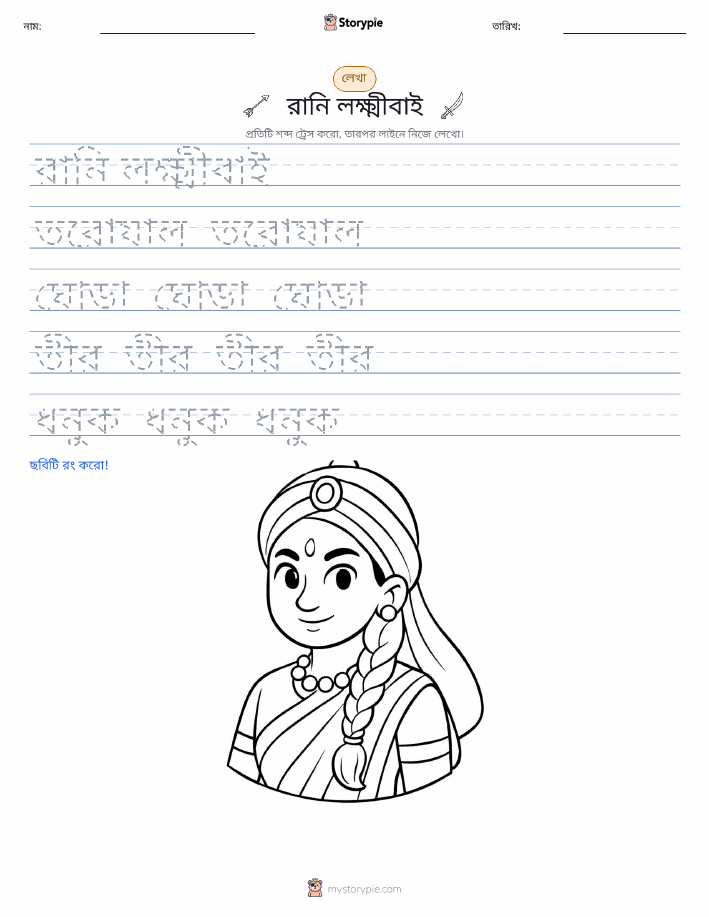 নাম:
Storypie
তারিখ:
লেখা
রানি লক্ষ্মীবাই
প্রতিটি শব্দ ট্রেস করো, তারপর লাইনে নিজে লেখো।
রানি লক্ষ্মীবাই
তরোয়াল তরোয়াল
ঘোড়া ঘোড়া ঘোড়া
তীর তীর তীর তীর
ধনুক ধনুক ধনুক
ছবিটি রং করো!
mystorypie.com